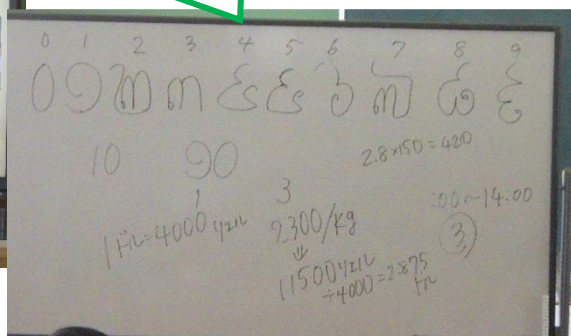 0 1 2 3 4 5 6 7 8 9
០ ១ ២ ៣ ៤ ៥ ៦ ៧ ៨ ៩
10 ១០
2.8×150=420
3
1ドル=4000リエル
2300/kg
:00~14:00
③
⇓
11500リエル
÷4000=2.875
ドル